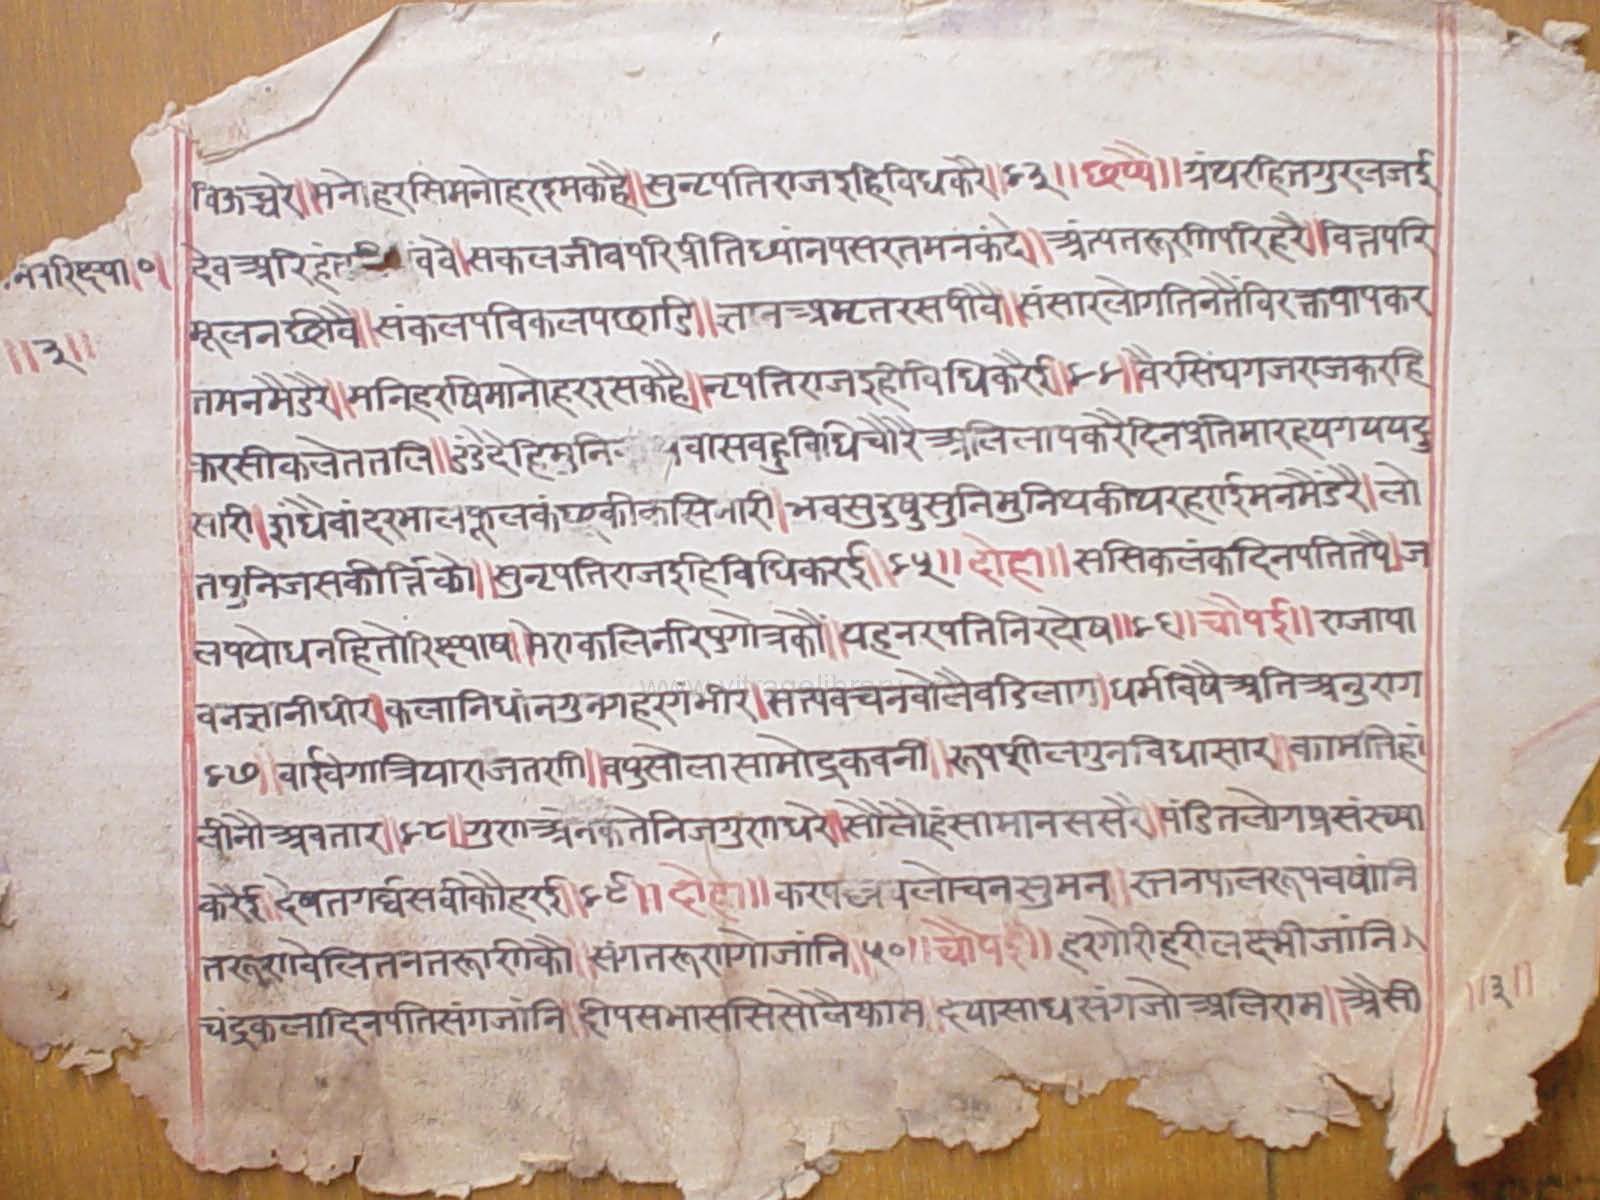 विऊच्चरे॥मनोहरसिमनोहरइमकहै॥सुनृपतिराजइहिविधकरै॥४३॥छप्पै॥ग्रंथरहितगुरलजई
देवअरिहंत वंवे।सकलजीवपरिप्रीतिध्यांनपसरतमनकंदे॥अंत्पतरूरणिपरिहरै॥वित्तपरि
नपरिक्ष्या॥०॥
मूलनछीवै॥संकलपविकलपछाडि॥ज्ञानअमृतरसपीवै॥संसारलोगतिनतैंविरक्तपापकर
॥३॥
तमनमैडरै॥मनिहरषिमानोहरइसकहै॥नृपतिराजइहीविधिकरैई॥४४॥वैरसिंघगजराजकरहि
करसीकलेततलि॥डंडैदेहिमुनि वासवहुविधिचौरैअलिलापकरैदिनप्रतिमारहयगयपदु
सारी।शंधैवांदरभालफूलकंघकीकसिनारी।भवसुदुषुसुनिमुनिथकीथरहराईमनमैंडरै।लो
तपुनिजसकीर्त्तिको॥सुनृपतिराजइहिविधिकरई॥४५॥दोहा॥ससिकलंकदिनपतितपै।ज
लपयोधनहितोरिक्ष्पाष॥मेराकलिनरिपुगोत्रकौं॥यहनरपतिनिरदोष॥४६॥चौपई॥राजापा
वनज्ञानीधीर।कलानिधांनगुनगहरगंभीर।सत्यवचनवोलैवडिलाग।धर्मविषैअतिअनुराग
४७॥वाईवैगात्रियाराजतरणी॥वपुसोलासामोद्रकवनी॥रूपशीलगुनविद्यासार॥कामतिहां
लीनौअवतार॥४८॥गुराअनेकतेनिजगुराधरे॥सौलौहंसामानससरै॥पंडितलोगप्रसंस्या
करैई।देषतगर्वसवीकौहरई॥४९॥दोहा॥करपल्लवलोचनसुमन॥स्तनफलरूपवषांनि
तरूरणवेलितनतरूणीकौ॥संगतरूराणोजांनि॥५०॥चौपई॥हरगोरीहरीलक्ष्मीजांनि।
चंद्रकलादिनपतिसंगजांनि॥दीपसभाससिसोलैयाम॥दयासाधसंगजोअलिराम॥अैसी
॥३॥